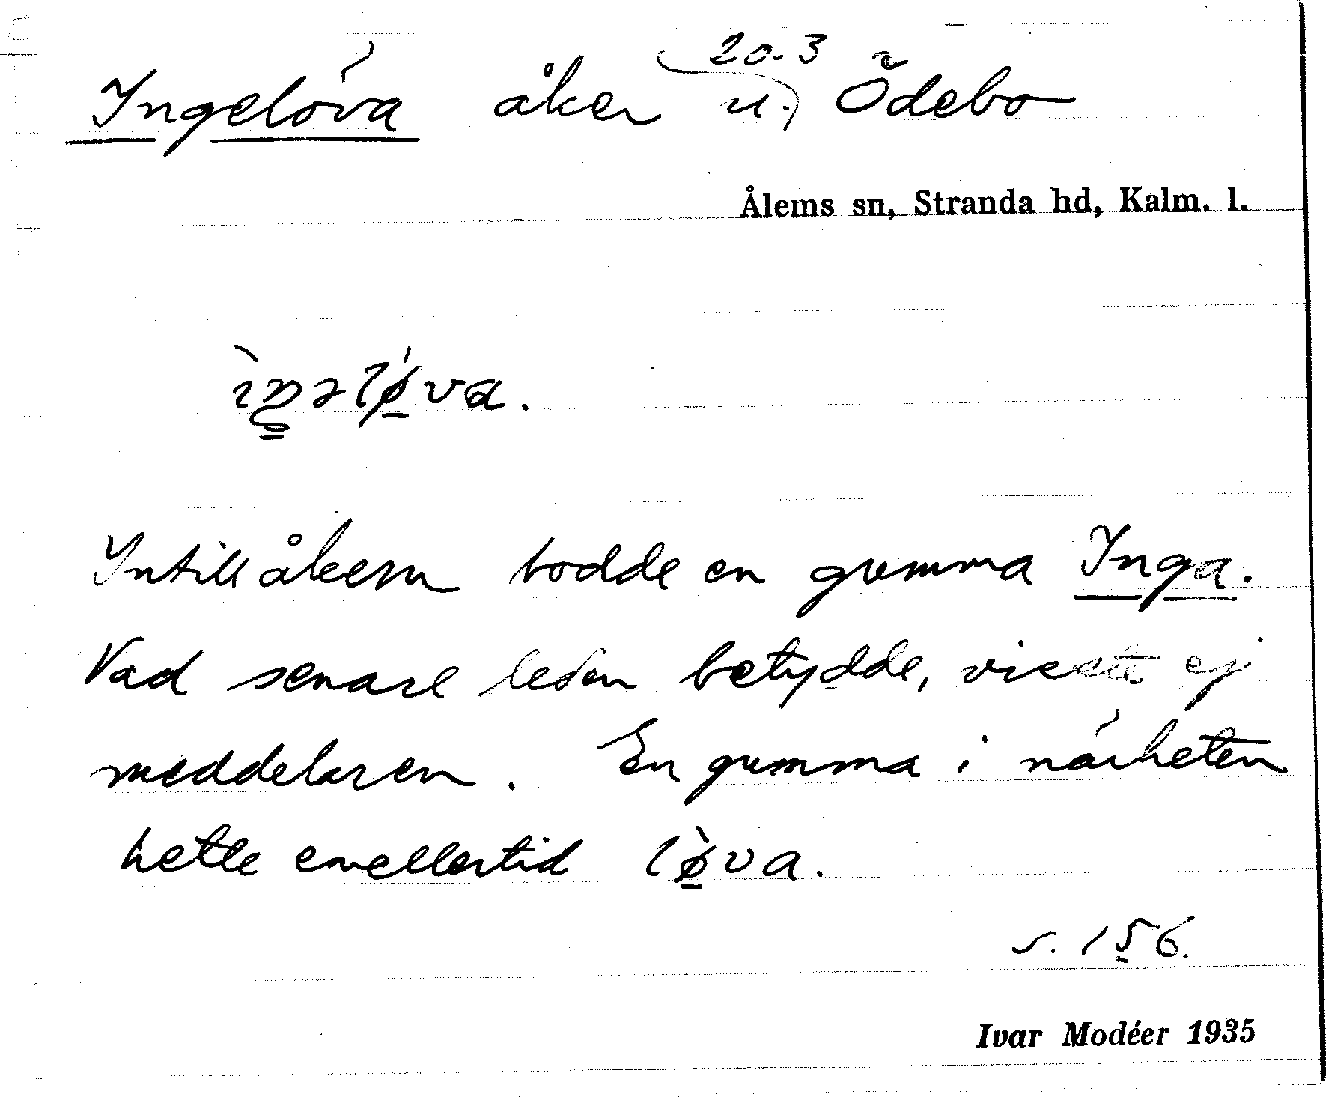 Ingelöva åker u. Ödebo
20.3
Ålems sn, Stranda hd, Kalm. l.
ìŋəlǿva.
Intill åkern bodde en gumma Inga.
Vad senare leden betydde, visste ej
meddelaren. En gumma i närheten
hette emellertid lø̀va.
s. 156.
Ivar Modéer 1935